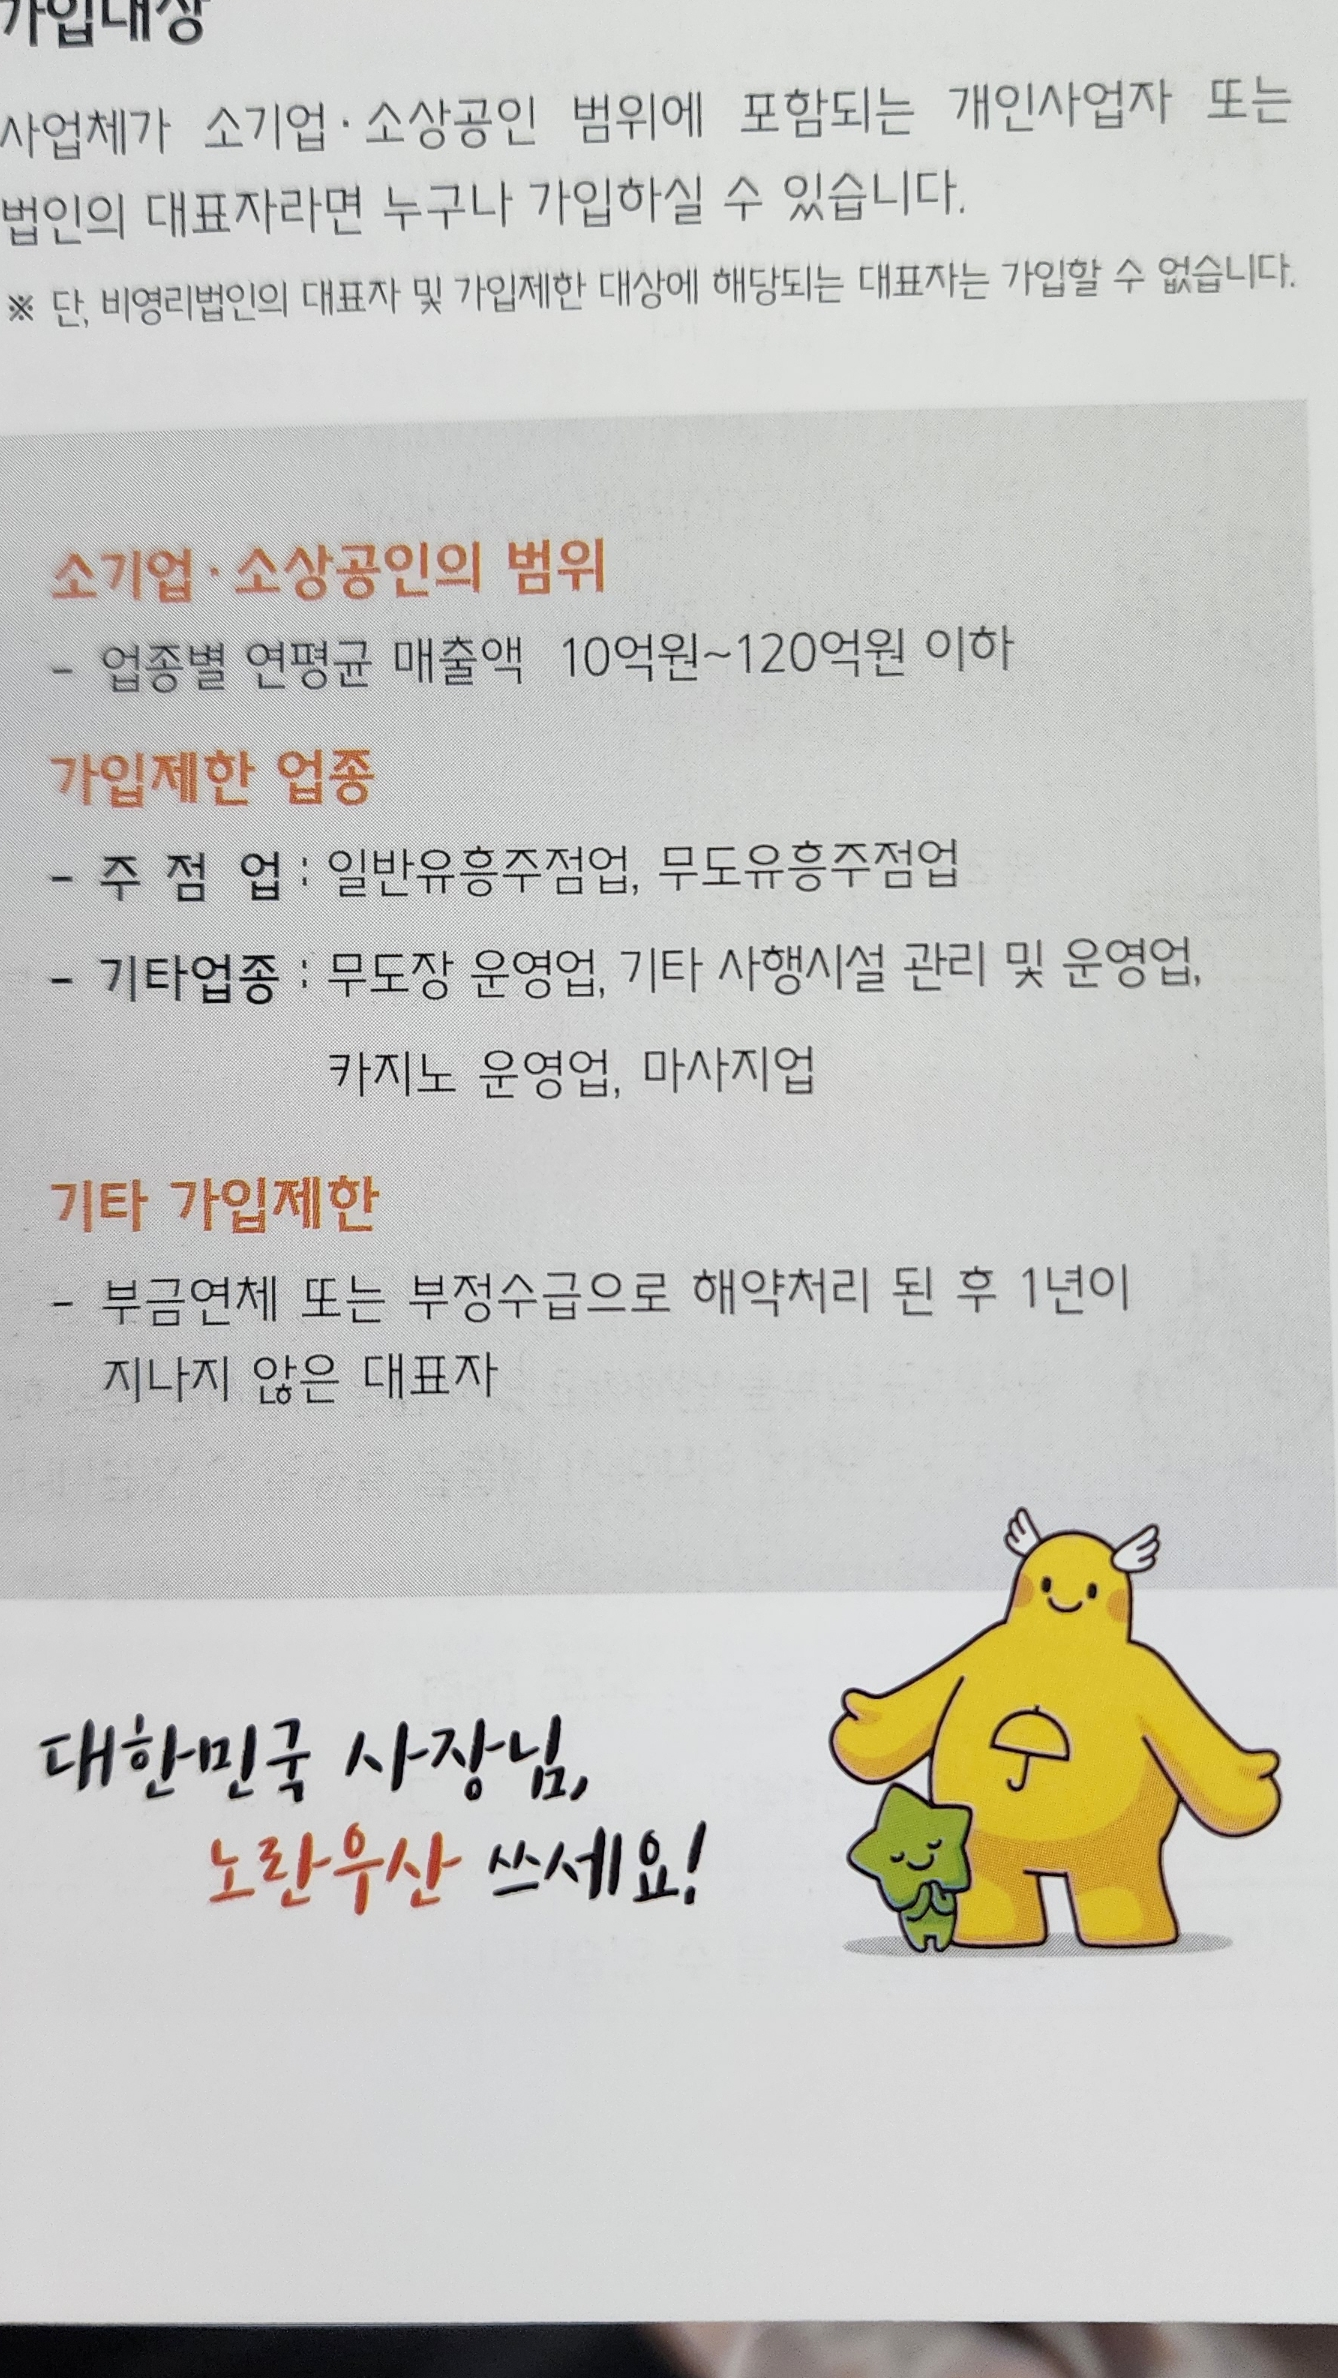 가입대상
사업체가 소기업·소상공인 범위에 포함되는 개인사업자 또는
법인의 대표자라면 누구나 가입하실 수 있습니다.
※ 단, 비영리법인의 대표자 및 가입제한 대상에 해당되는 대표자는 가입할 수 없습니다.
소기업·소상공인의 범위
- 업종별 연평균 매출액 10억원~120억원 이하
가입제한 업종
- 주 점 업 : 일반유흥주점업, 무도유흥주점업
- 기타업종 : 무도장 운영업, 기타 사행시설 관리 및 운영업,
카지노 운영업, 마사지업
기타 가입제한
- 부금연체 또는 부정수급으로 해약처리 된 후 1년이
지나지 않은 대표자
대한민국 사장님,
노란우산 쓰세요!